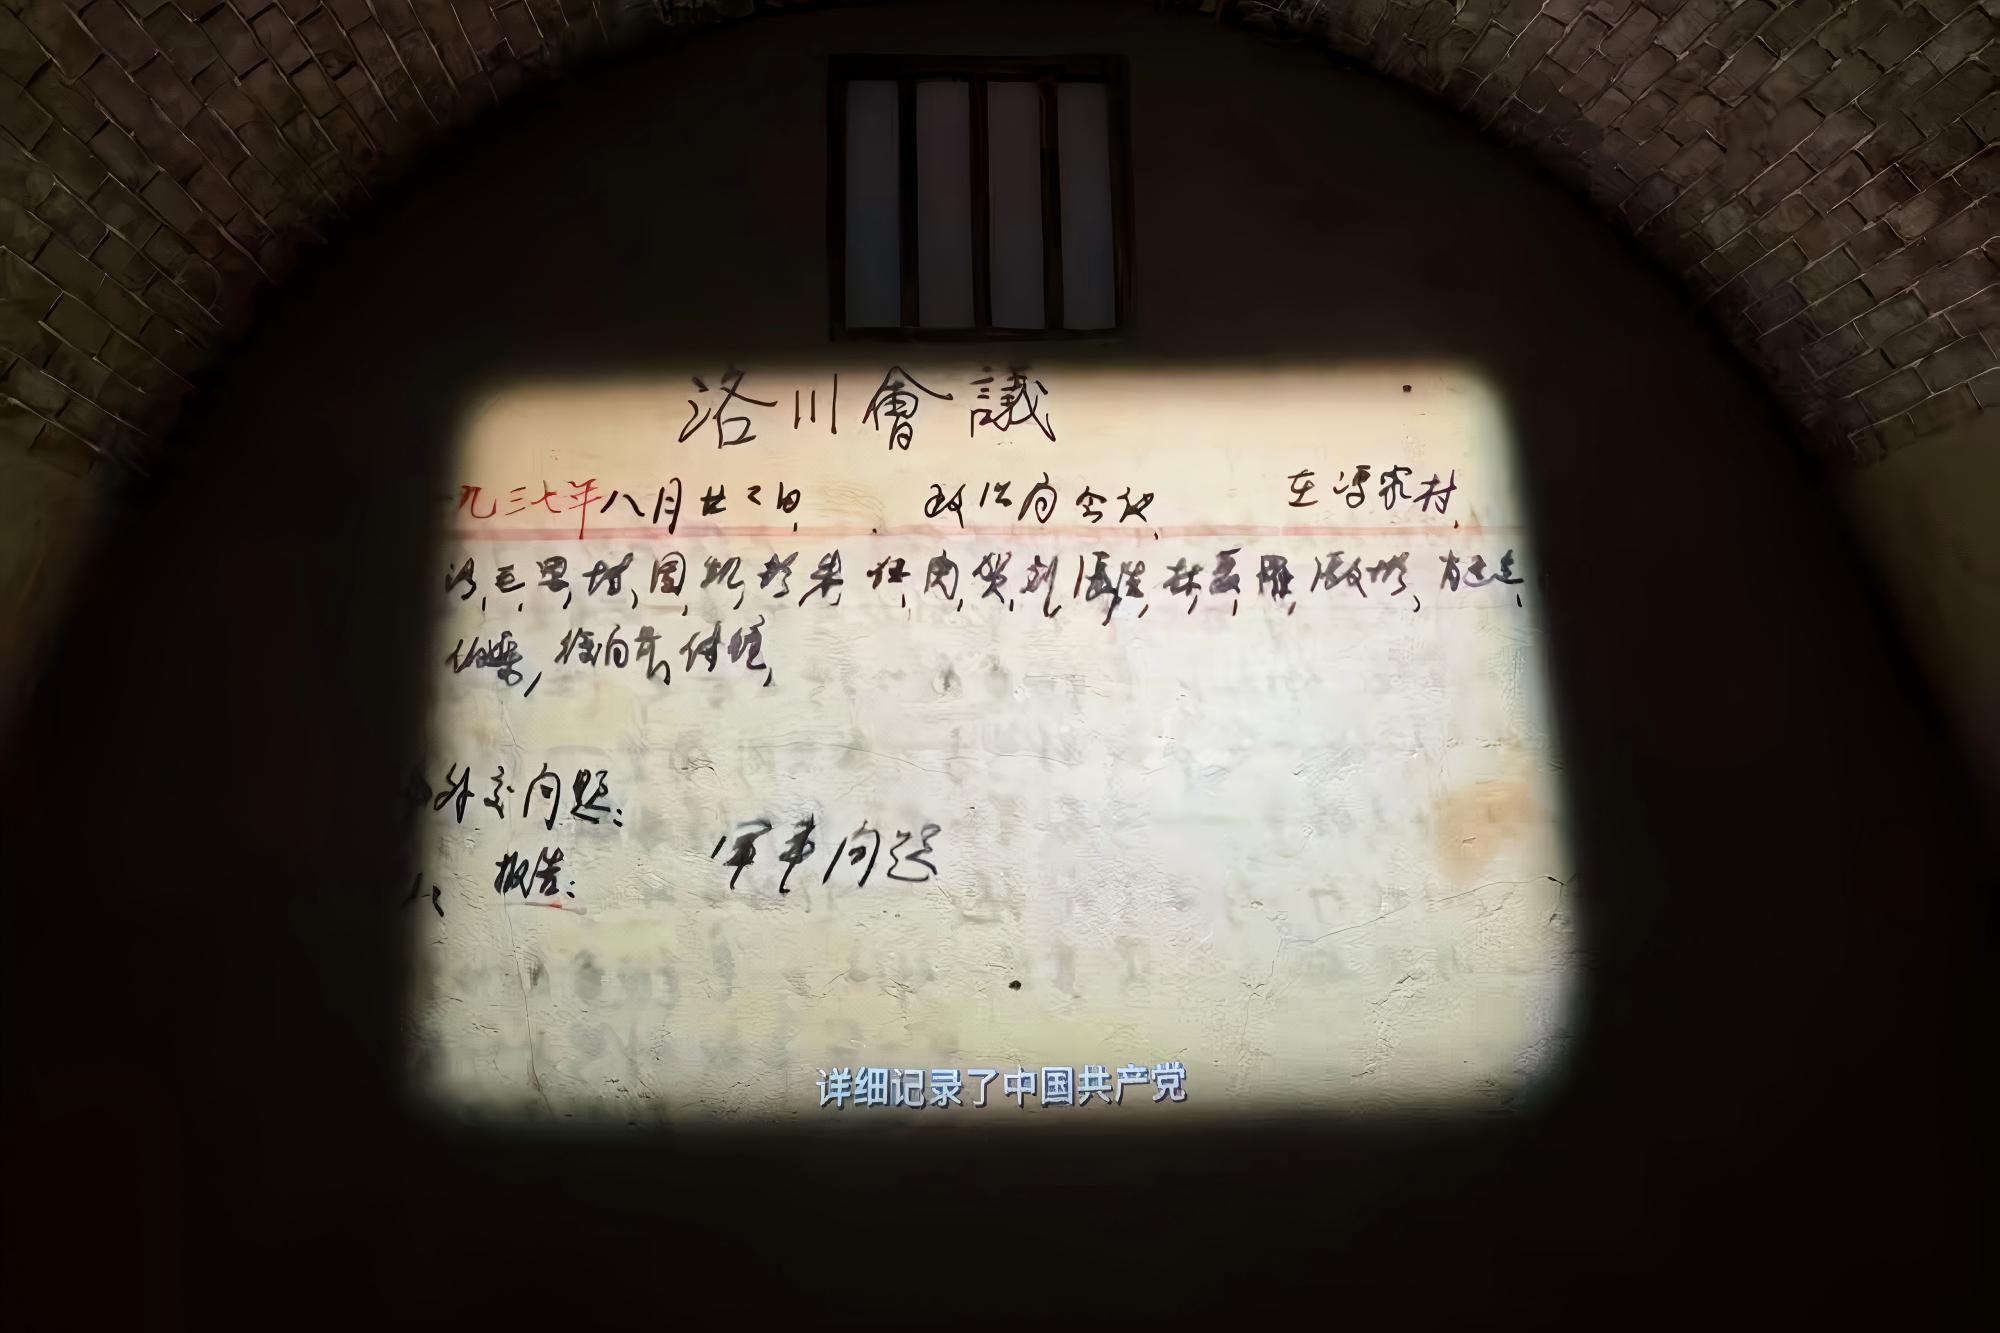 洛川會議
九三七年八月廿二日 政治局会议 在冯家村
洛,毛,恩,博,国,凯,彭朱 任,关,贺,刘,张浩,林,聂,罗,张文彬,肖劲光,
伯渠,徐向前,傅钟,
外交问题:
报告: 军事问题
详细记录了中国共产党